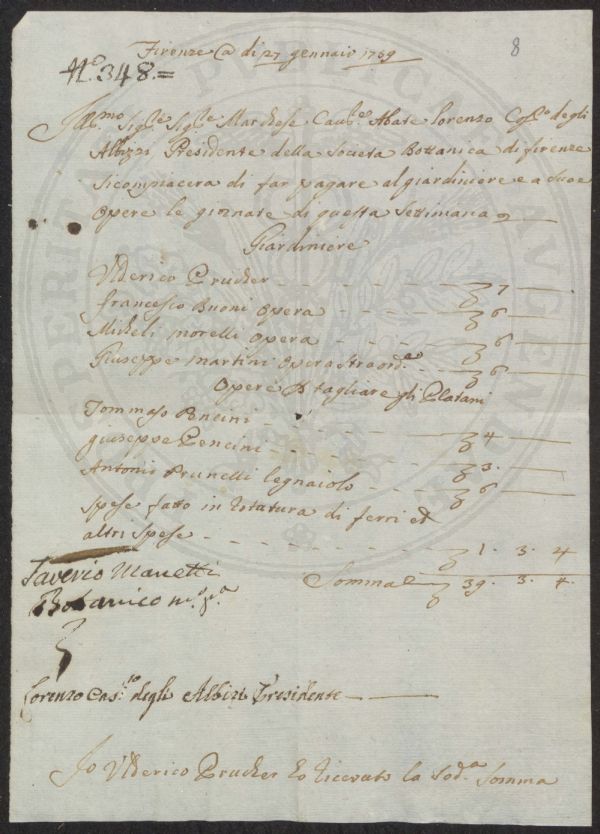 8
Firenze @ di 27 gennaio 1769
N.º 348.=
Ill.mo Sig.re Sig.re Marchese Cav.re Abate Lorenzo degli
Albizzi Presidente della Societa Bottanica di firenze
si compiacera di far pagare al giardiniere e a sue
Opere le giornate di questa Settimana
Giardiniere
Ulderico Prucker - - - - - 7 —
francesco Buoni Opera - - - - 6 —
Micheli Morelli Opera - - - - 6 —
Giuseppe Martini Opera Straord.ª - - 6 —
Opere p tagliare gli Platani
Tommaso Pencini - - - - 4 —
giuseppe Pencini - - - - 3. —
Antonio Prunelli legnaiolo - - - 6 —
Spese fatto in di ferri ed
altri Spese - - - - 1. 3. 4
Saverio Manetti
Somma 39. 3. 4.
Botanico m.º p.ª
Lorenzo Cas.re degli Albizi Presidente
Io Ulderico Prucker ho ricevuto la Sod.ª Somma
PROSPERITATI PUBLICAE AUGENDAE